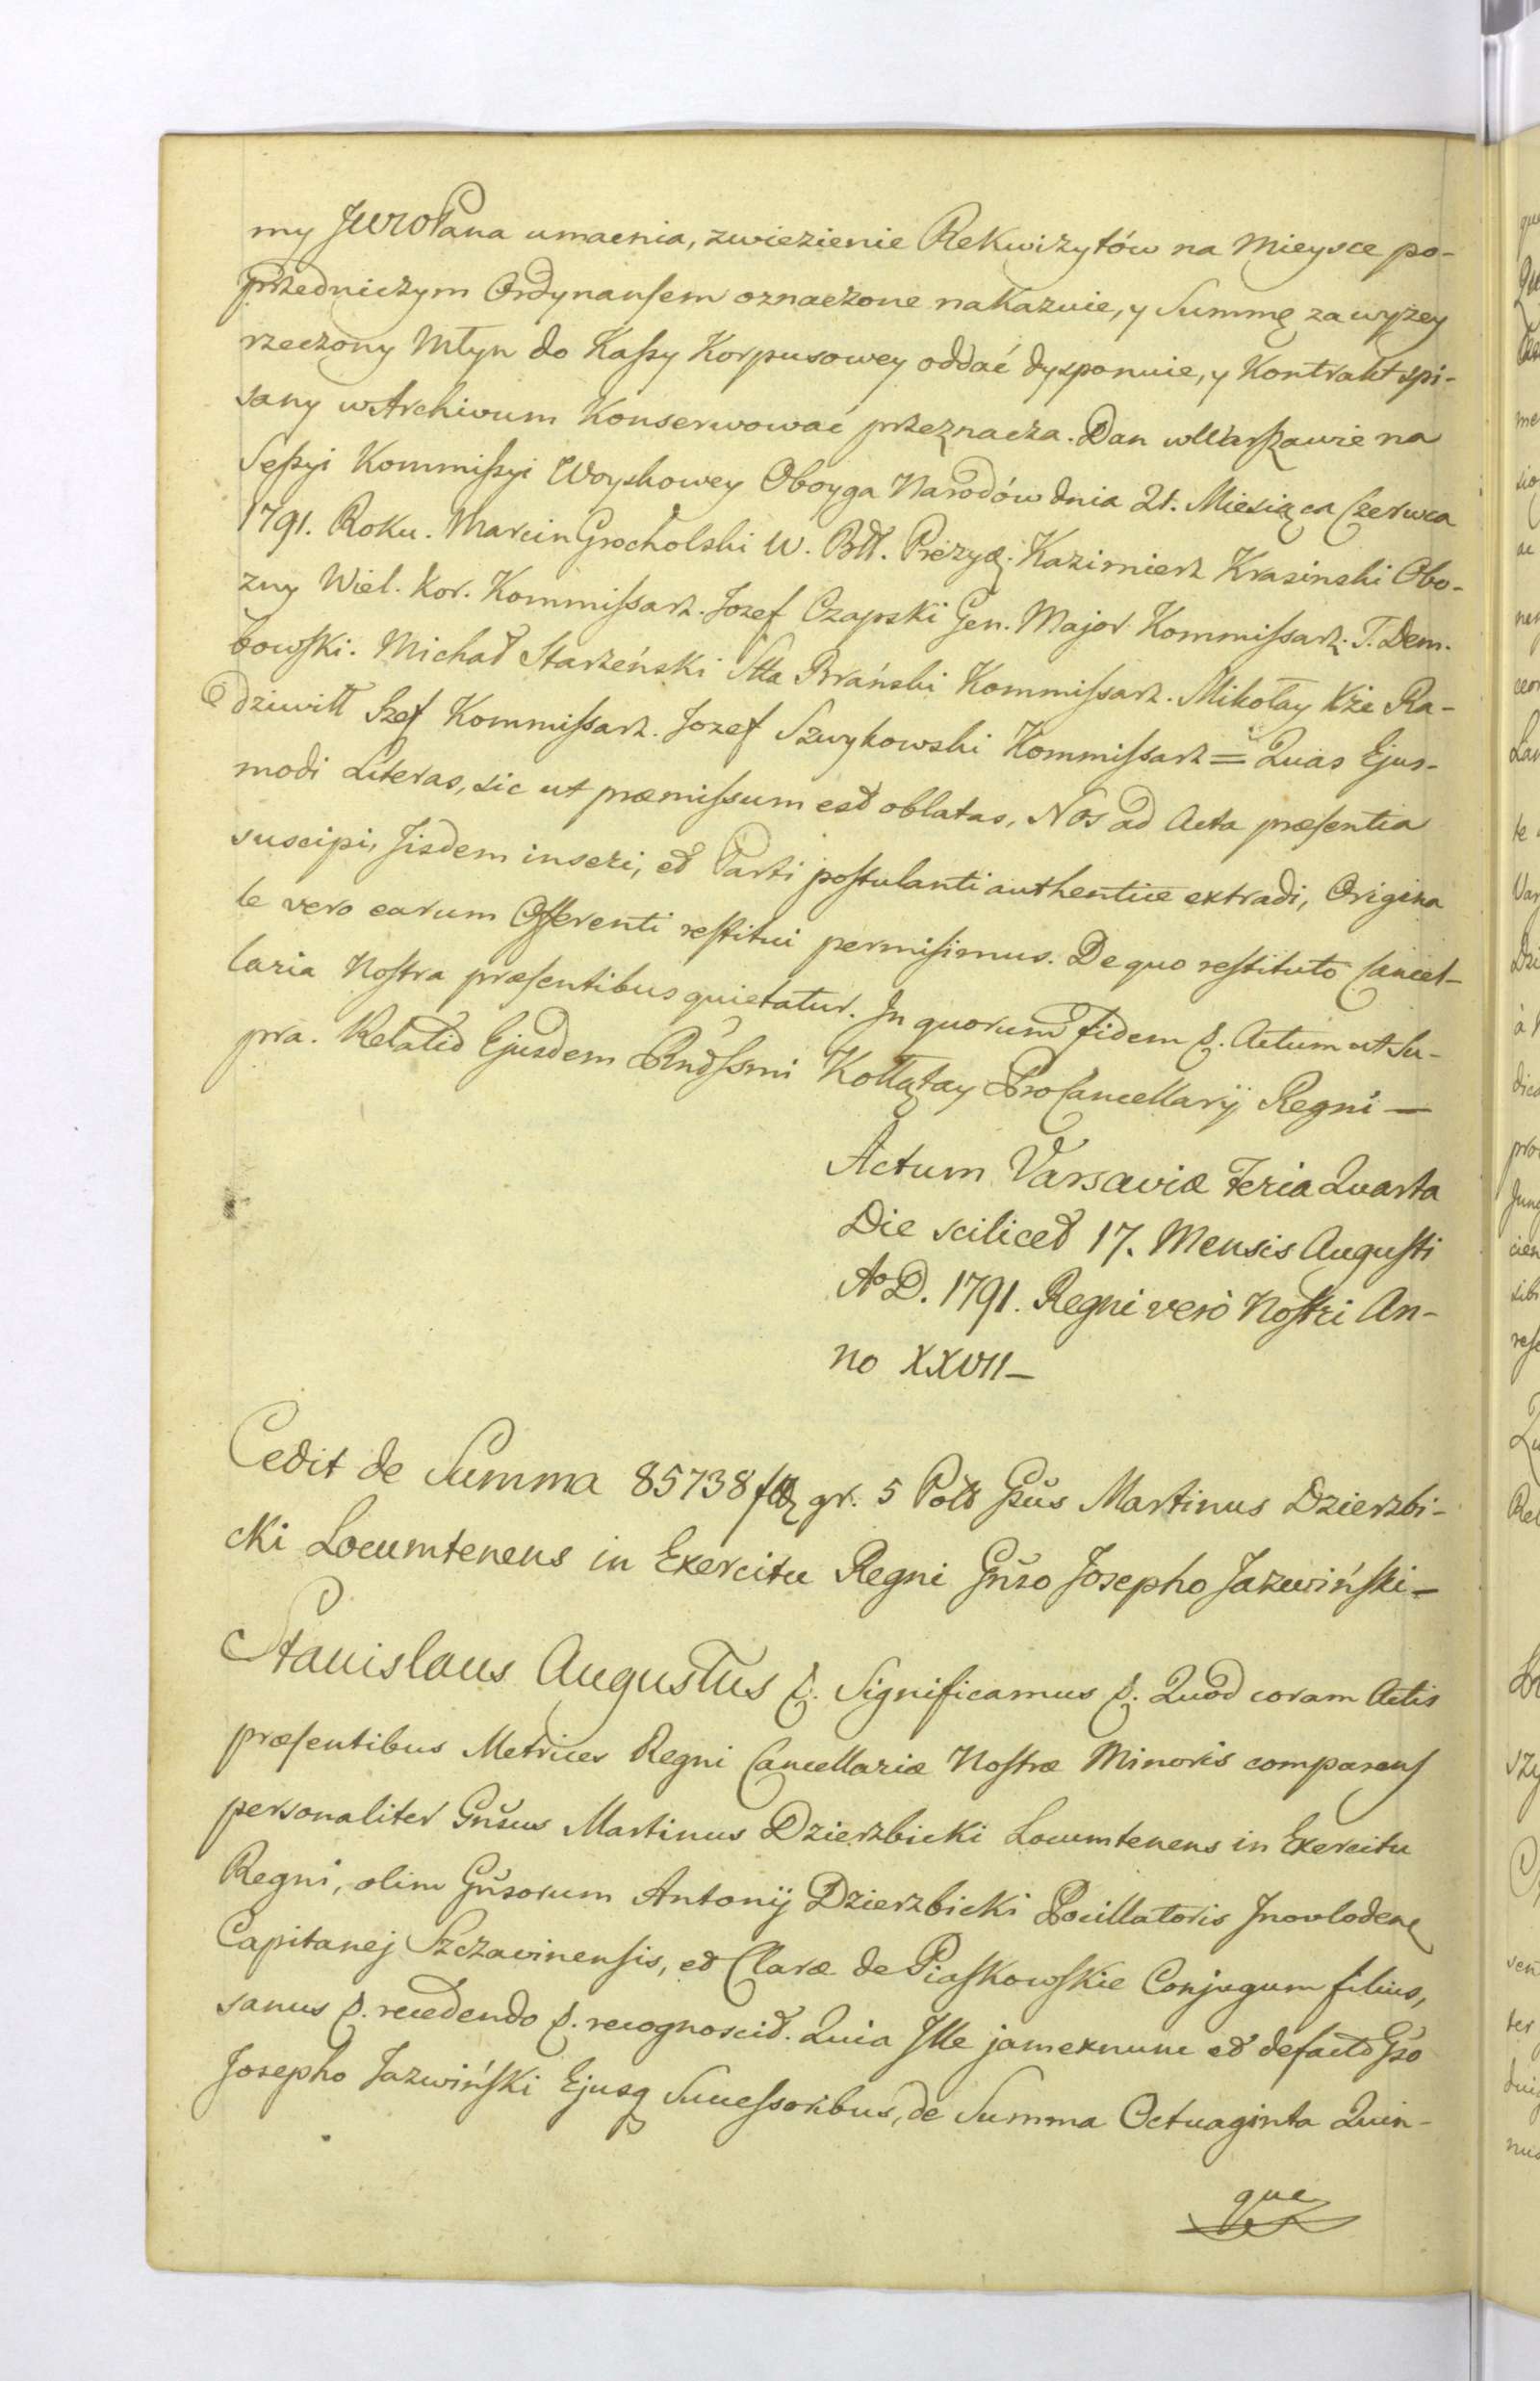 my JWWo Pana umacnia, zwiezienie Rekwizytów na Mieysce po-
przedniczym Ordynansem oznaczone nakazuie, y Summę za wyżey
rzeczony Młyn do Kassy Korpusowey oddać dysponuie, y Kontrakt spi-
sany w Archivum Konserwować przeznacza. Dan w Warszawie na
Sessyi Kommissyi Woyskowey Oboyga Narodów dnia 21. Miesiąca Czerwca
1791. Roku. Marcin Grocholski W. Bł. Prezyd. Kazimierz Krasinski Obo-
zny Wiel. Kor. Kommissarz. Jozef Czapski Gen. Major Kommissarz. T. Dem-
bowski. Michał Starzeński Stta Brański Kommissarz. Mikołay Xże Ra-
dziwiłł Szef Kommissarz. Jozef Szwykowski Kommissarz = Quas Ejus-
modi Literas, sic ut præmissum est oblatas, Nos ad Acta præsentia
suscipi, Iisdem inseri, et Parti postulanti authentice extradi, Origina
le vero earum Offerenti restitui permisimus. De quo restituto Cancel-
laria Nostra præsentibus quietatur. In quorum fidem p. Actum ut Su-
pra. Relatio Ejusdem Rndssmi Kołłątay ProCancellarij Regni —
Actum Varsaviæ Feria Quarta
Die scilicet 17. Mensis Augusti
Ao D. 1791. Regni verò Nostri An-
no XXVII —
Cedit de Summa 85738 fl gr. 5 Pol Gsus Martinus Dzierzbi-
cki Locumtenens in Exercitu Regni Gnso Josepho Jazwiński —
Stanislaus Augustus p. Significamus p. Quod coram Actis
præsentibus Metrices Regni Cancellariæ Nostræ Minoris comparens
personaliter Gnsus Martinus Dzierzbicki Locumtenens in Exercitu
Regni, olim Gnsorum Antonij Dzierzbicki Pocillatoris Inovlodens
Capitanej Szczavinensis, et Claræ de Piaskowskie Conjugum filius,
sanus p. recedendo p. recognoscit. Quia Ille jam exnunc et defacto Gso
Josepho Jazwiński Ejusq Successoribus, de Summa Octuaginta Quin-
que